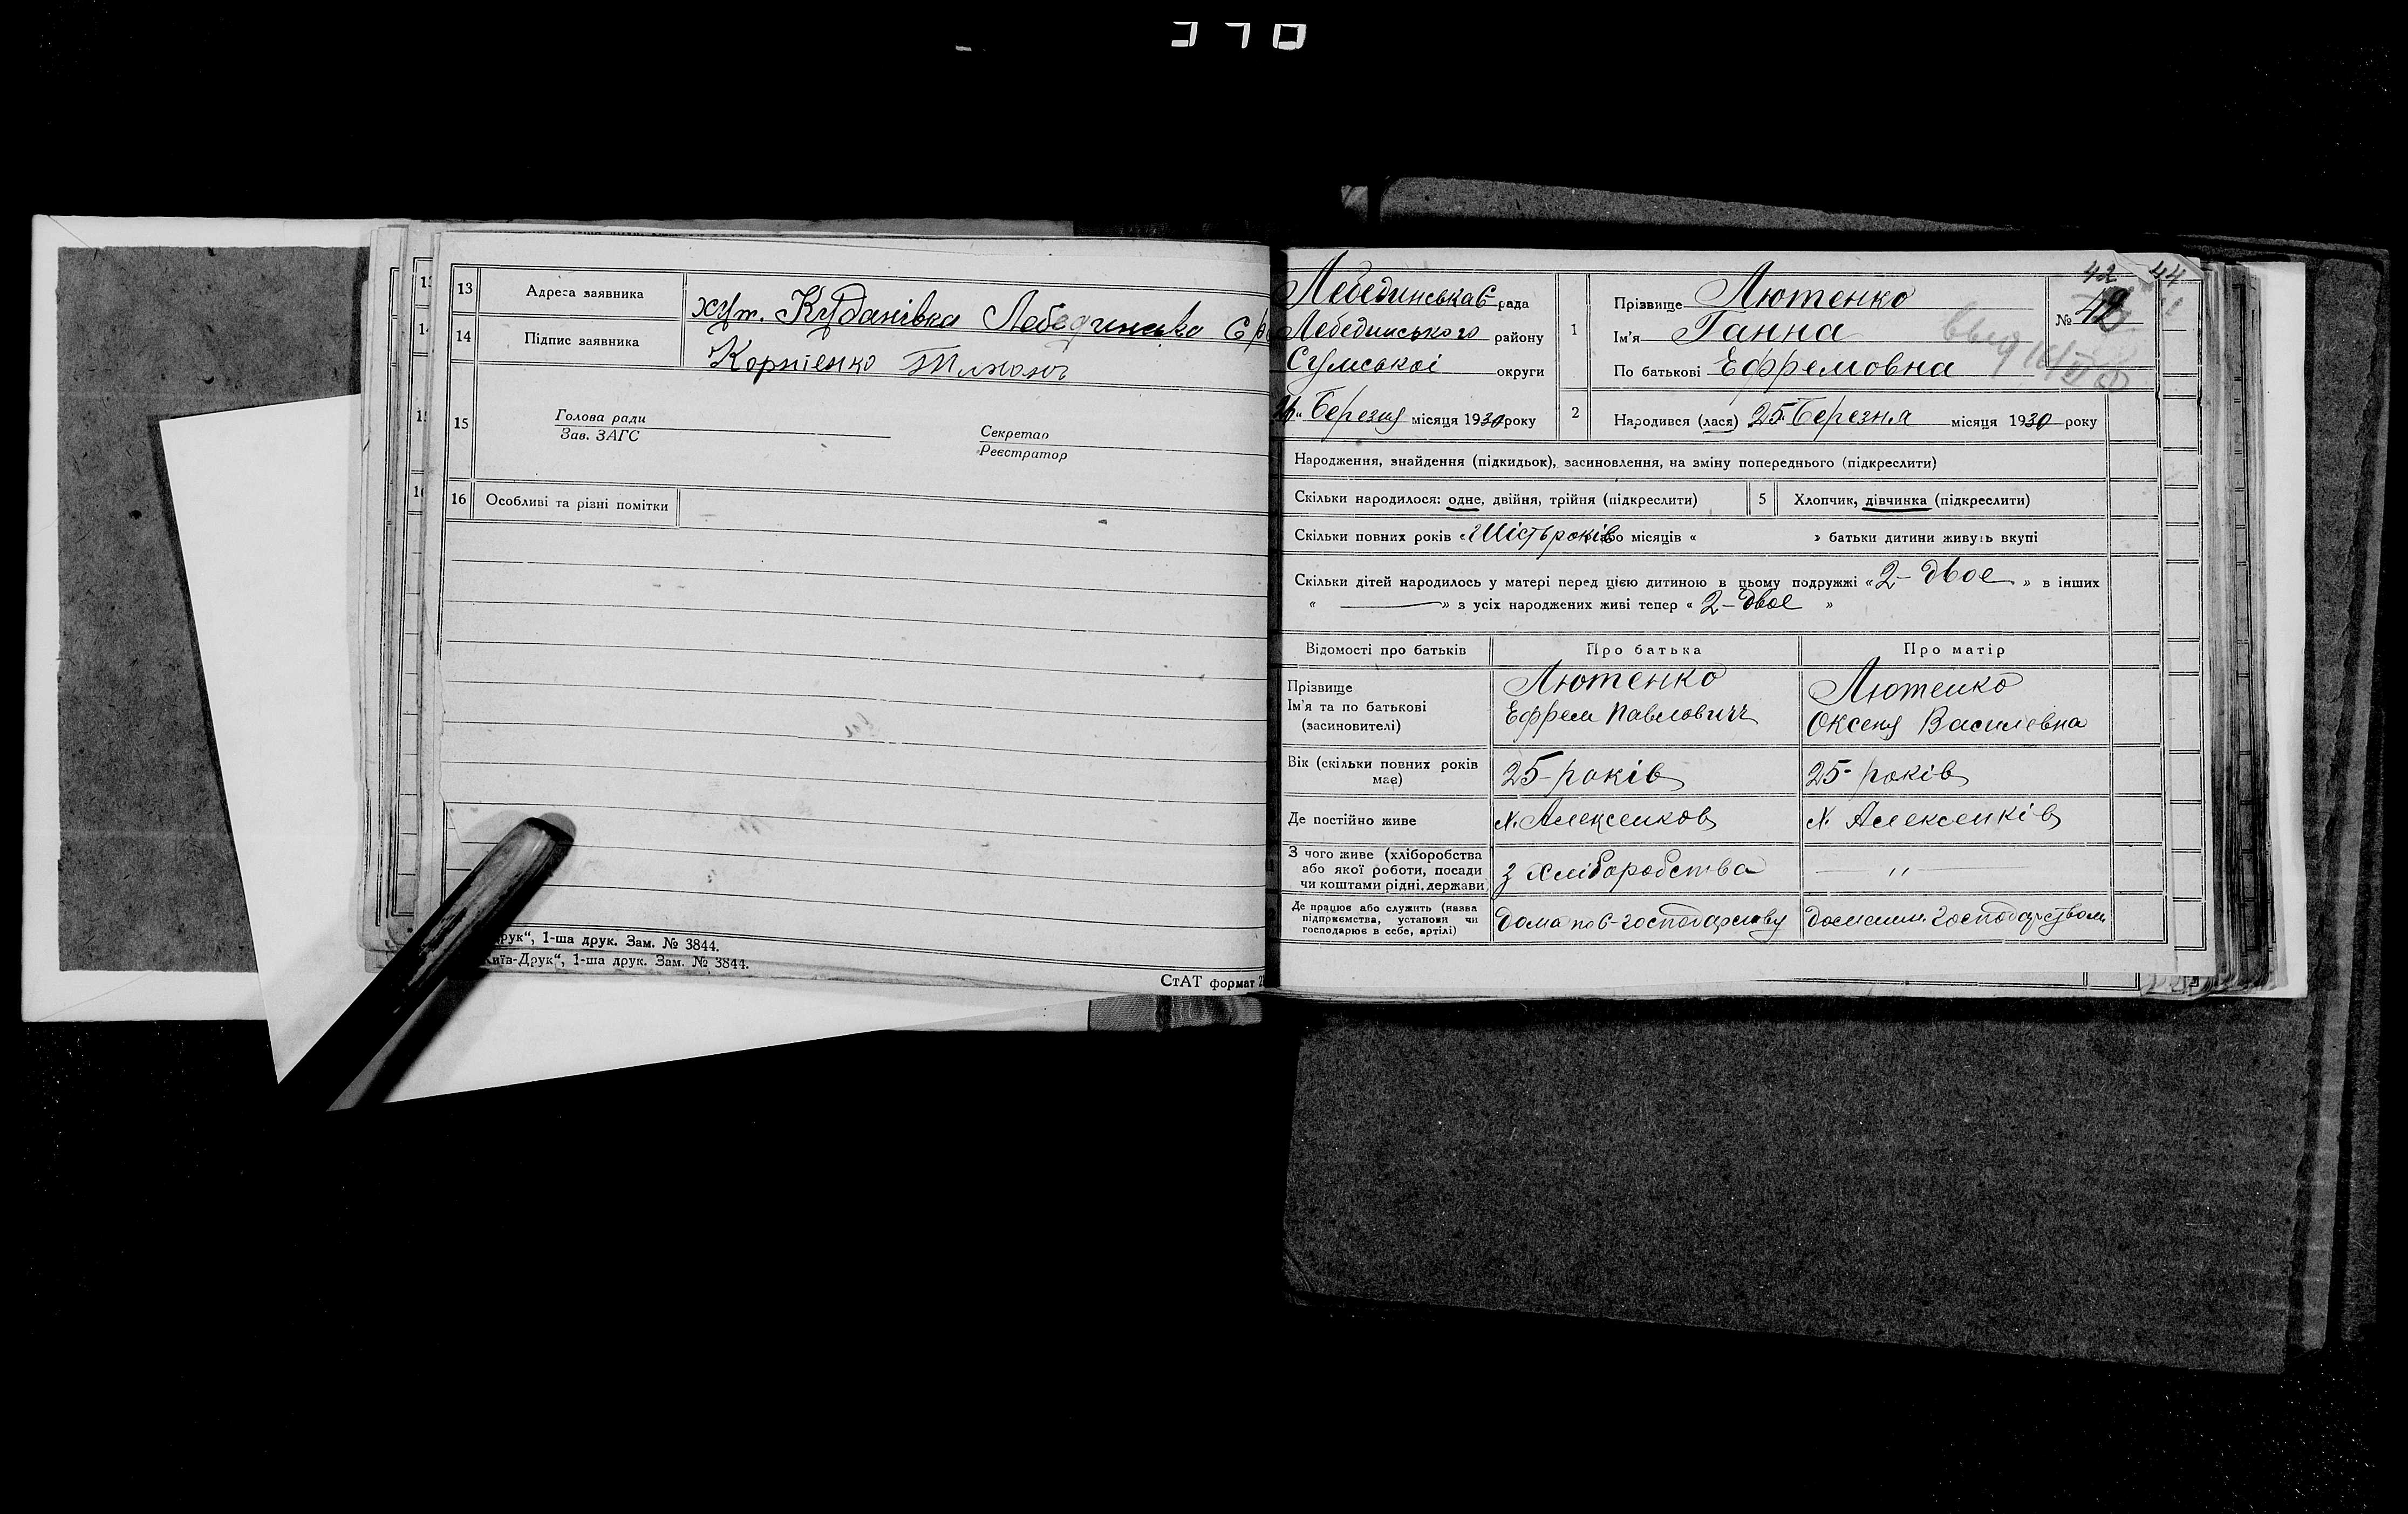 370
13 Адреса заявника хут. Кудановка Лебединська С р
14 Підпис заявника Корнієнко
15 Голова ради
Зав. ЗАГС
Секретар
Реєстратор
16 Особливі та різні помітки
друк“, 1-ша друк. Зам. № 3844.
Київ-Друк“, 1-ша друк. Зам. № 3844.
СтАТ формат
42 44
Лебединська С рада
Лебединського району
Сумської округи
Березня місяця 1930 року
1 Прізвище Лютенко
№ 42
Ім’я Ганна
По батькові Ефремовна
2 Народився (лася) 25 Березня місяця 1930 року
Народження, знайдення (підкидьок), засиновлення, на зміну попереднього (підкреслити)
Скільки народилося: одне, двійня, трійня (підкреслити) 5 Хлопчик, дівчинка (підкреслити)
Скільки повних років « Шість років або місяців « » батьки дитини живуть вкупі
Скільки дітей народилось у матері перед цією дитиною в цьому подружжі «2 – двое» в інших
« —» з усіх народжених живі тепер «2 – двое»
Відомості про батьків Про батька Про матір
Прізвище
Ім’я та по батькові
(засиновителі)
Лютенко
Ефрем Павлович
Лютенко
Оксеня Василевна
Вік (скільки повних років
має)
25 – років
25 – років
Де постійно живе х. Алексенков х. Алексенків
З чого живе (хліборобства
або якої роботи, посади
чи коштами рідні, держави
з хліборобства
— ” —
Де працює або служить (назва
підприємства, установи чи
господарює в себе, артілі)
дома по с-господарству
домашн. господарством